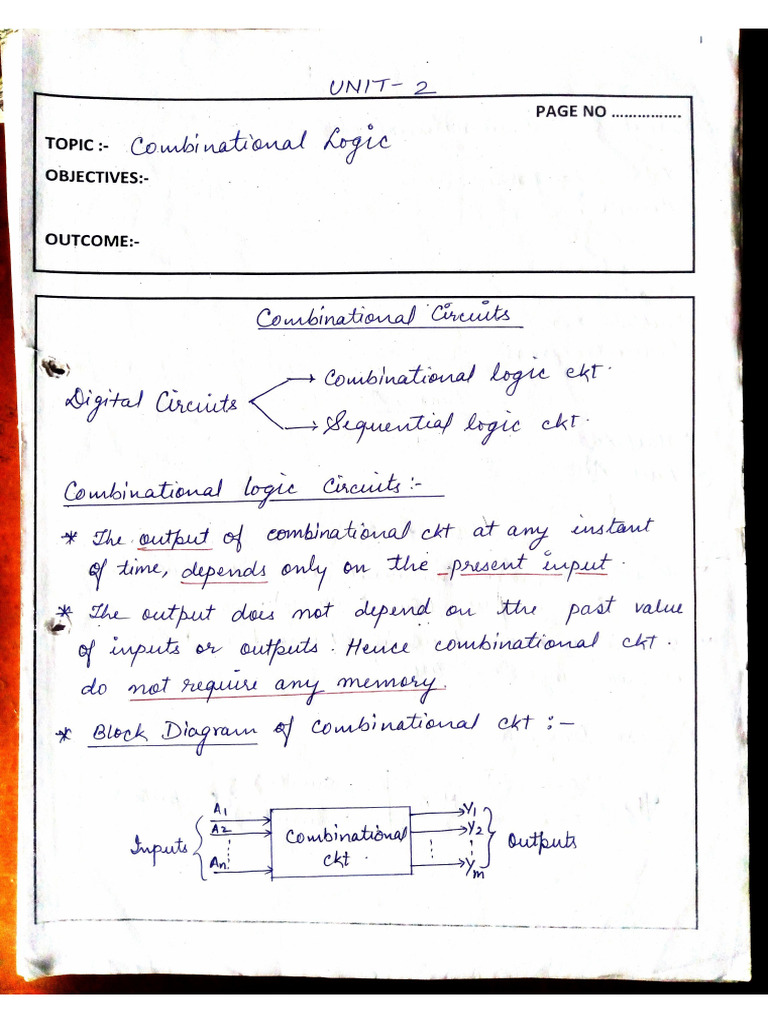 UNIT- 2
PAGE NO ................
TOPIC :- Combinational Logic
OBJECTIVES:-
OUTCOME:-
Combinational Circuits
Digital Circuits
Combinational logic ckt.
Sequential logic ckt.
Combinational logic Circuits :-
* The output of combinational ckt at any instant
of time, depends only on the present input.
* The output does not depend on the past value
of inputs or outputs. Hence combinational ckt.
do not require any memory.
* Block Diagram of combinational ckt :-
Inputs
A1
A2
An
Combinational
ckt.
Y1
Y2
Ym
Outputs